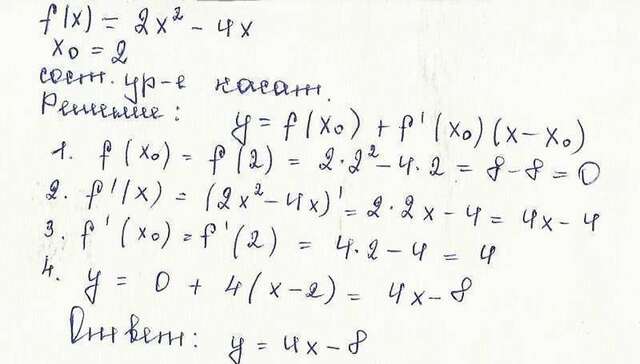 f(x) = 2x² - 4x
x₀ = 2
сост. ур-е касат.
Решение:
y = f(x₀) + f'(x₀)(x - x₀)
1. f(x₀) = f(2) = 2·2² - 4·2 = 8 - 8 = 0
2. f'(x) = (2x² - 4x)' = 2·2x - 4 = 4x - 4
3. f'(x₀) = f'(2) = 4·2 - 4 = 4
4. y = 0 + 4(x - 2) = 4x - 8
Ответ: y = 4x - 8